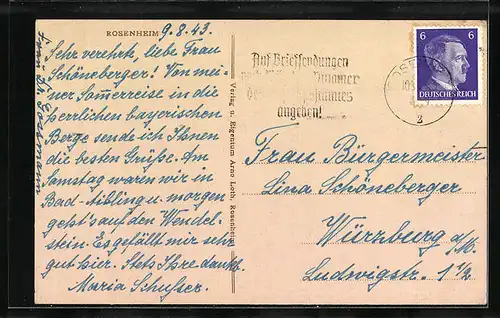 ROSENHEIM 9.8.43.
Sehr verehrte, liebe Frau
Schöneberger! Von mei-
ner Sommerreise in die
herrlichen bayerischen
Berge sende ich Ihnen
die besten Grüße. Am
Samstag waren wir in
Bad-Aibling u. morgen
geht's auf den Wendel-
stein. Es gefällt mir sehr
gut hier. Stets Ihre dankb.
Maria
Verlag u. Eigentum Arno Loth, Rosenheim
Auf Briefsendungen
angeben!
6 6
DEUTSCHES REICH
2
Frau Bürgermeister
Lina Schöneberger
Würzburg a/M.
Ludwigstr. 1 1/2